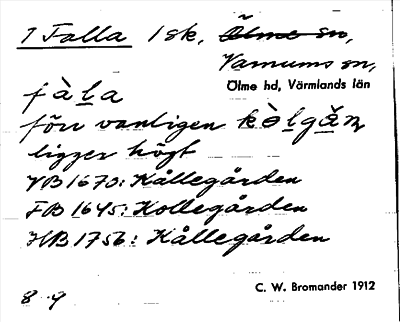 1 Falla 1 sk. Ölme sn,
Varnums sn,
Ölme hd, Värmlands län
fàla
förr vanligen kòlgån
ligger högt
VB 1670: Kållegården
FB 1645: Kollegården
HB 1756: Kållegården
C. W. Bromander 1912
8 9